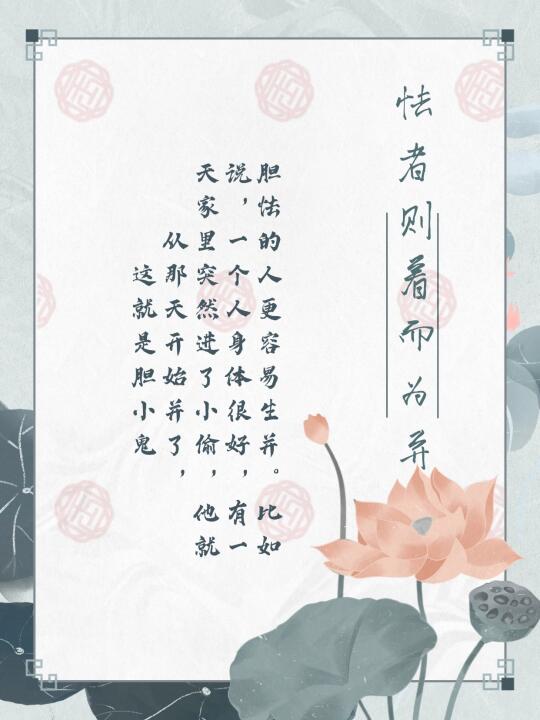 怯者则着而为并
胆怯的人更容易生并。比如
说，一个人身体很好，有一
天家里突然进了小偷，他就
从那天开始并了，
这就是胆小鬼